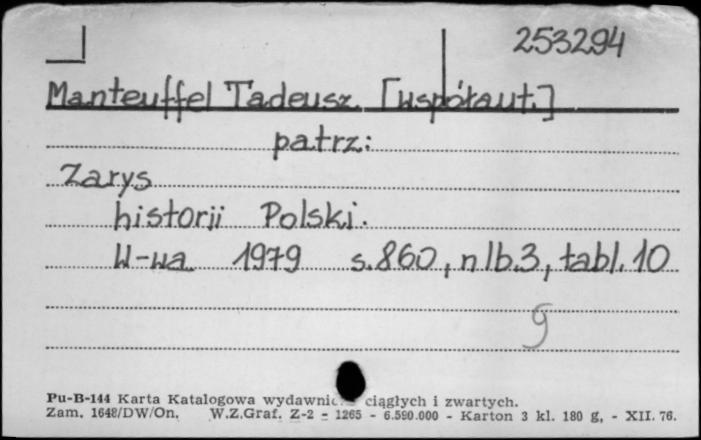 253294
Manteuffel Tadeusz [współaut.]
patrz:
Zarys
historii Polski.
W-wa 1979 s.860, nlb.3, tabl.10
9
Pu-B-144 Karta Katalogowa ciągłych i zwartych.
Zam. 1648/DW/On. W.Z.Graf. Z-2 - 1265 - 6.590.000 - Karton 3 kl. 180 g, - XII. 76.